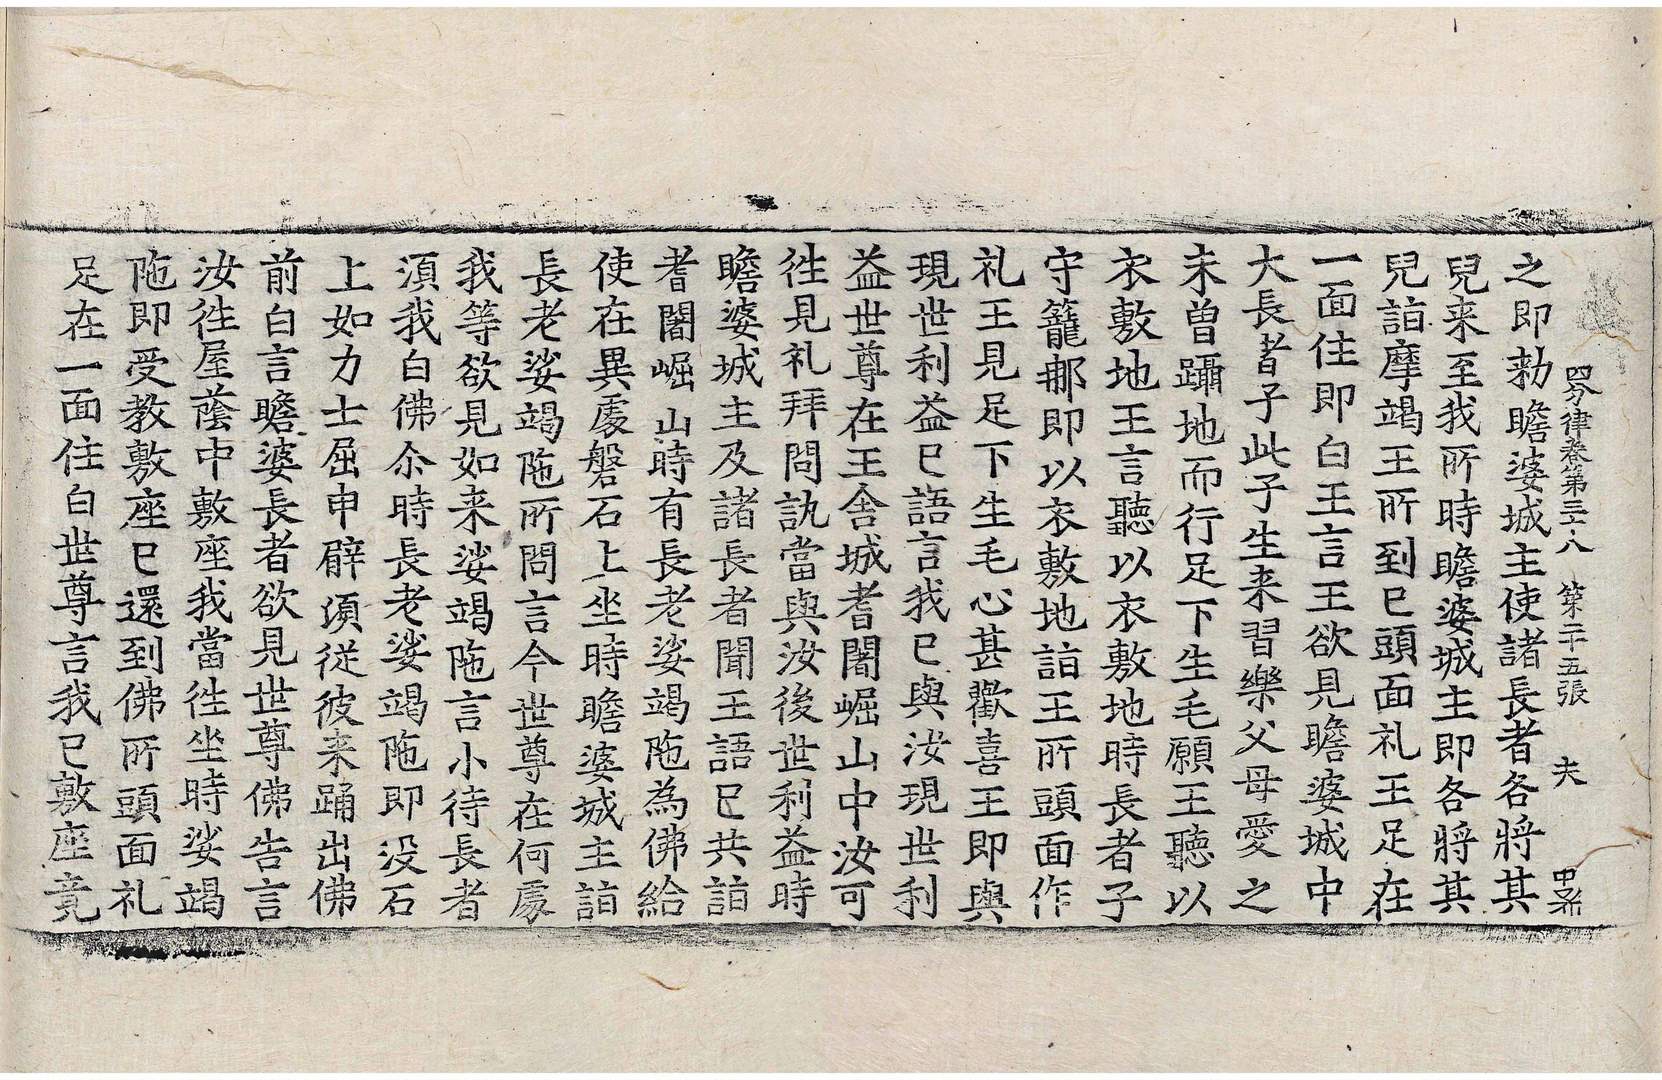 四分律卷第三十八 第二十五張 夫 甲
之即勑瞻婆城主使諸長者各將其
兒来至我所時瞻婆城主即各將其
兒詣摩竭王所到已頭面礼王足在
一面住即白王言王欲見瞻婆城中
大長者子此子生来習樂父母愛之
未曽躡地而行足下生毛願王聽以
衣敷地王言聽以衣敷地時長者子
守籠那即以衣敷地詣王所頭面作
礼王見足下生毛心甚歡喜王即與
現世利益已語言我已與汝現世利
益世尊在王舍城耆闍崛山中汝可
徃見礼拜問訊當與汝後世利益時
瞻婆城主及諸長者聞王語已共詣
耆闍崛山時有長老娑竭陁為佛給
使在異處磐石上坐時瞻婆城主詣
長老娑竭陁所問言今世尊在何處
我等欲見如来娑竭陁言小待長者
湏我白佛尒時長老娑竭陁即没石
上如力士屈申臂湏從彼来踊出佛
前白言瞻婆長者欲見世尊佛告言
汝徃屋蔭中敷座我當徃坐時娑竭
陁即受教敷座已還到佛所頭面礼
足在一面住白世尊言我已敷座竟